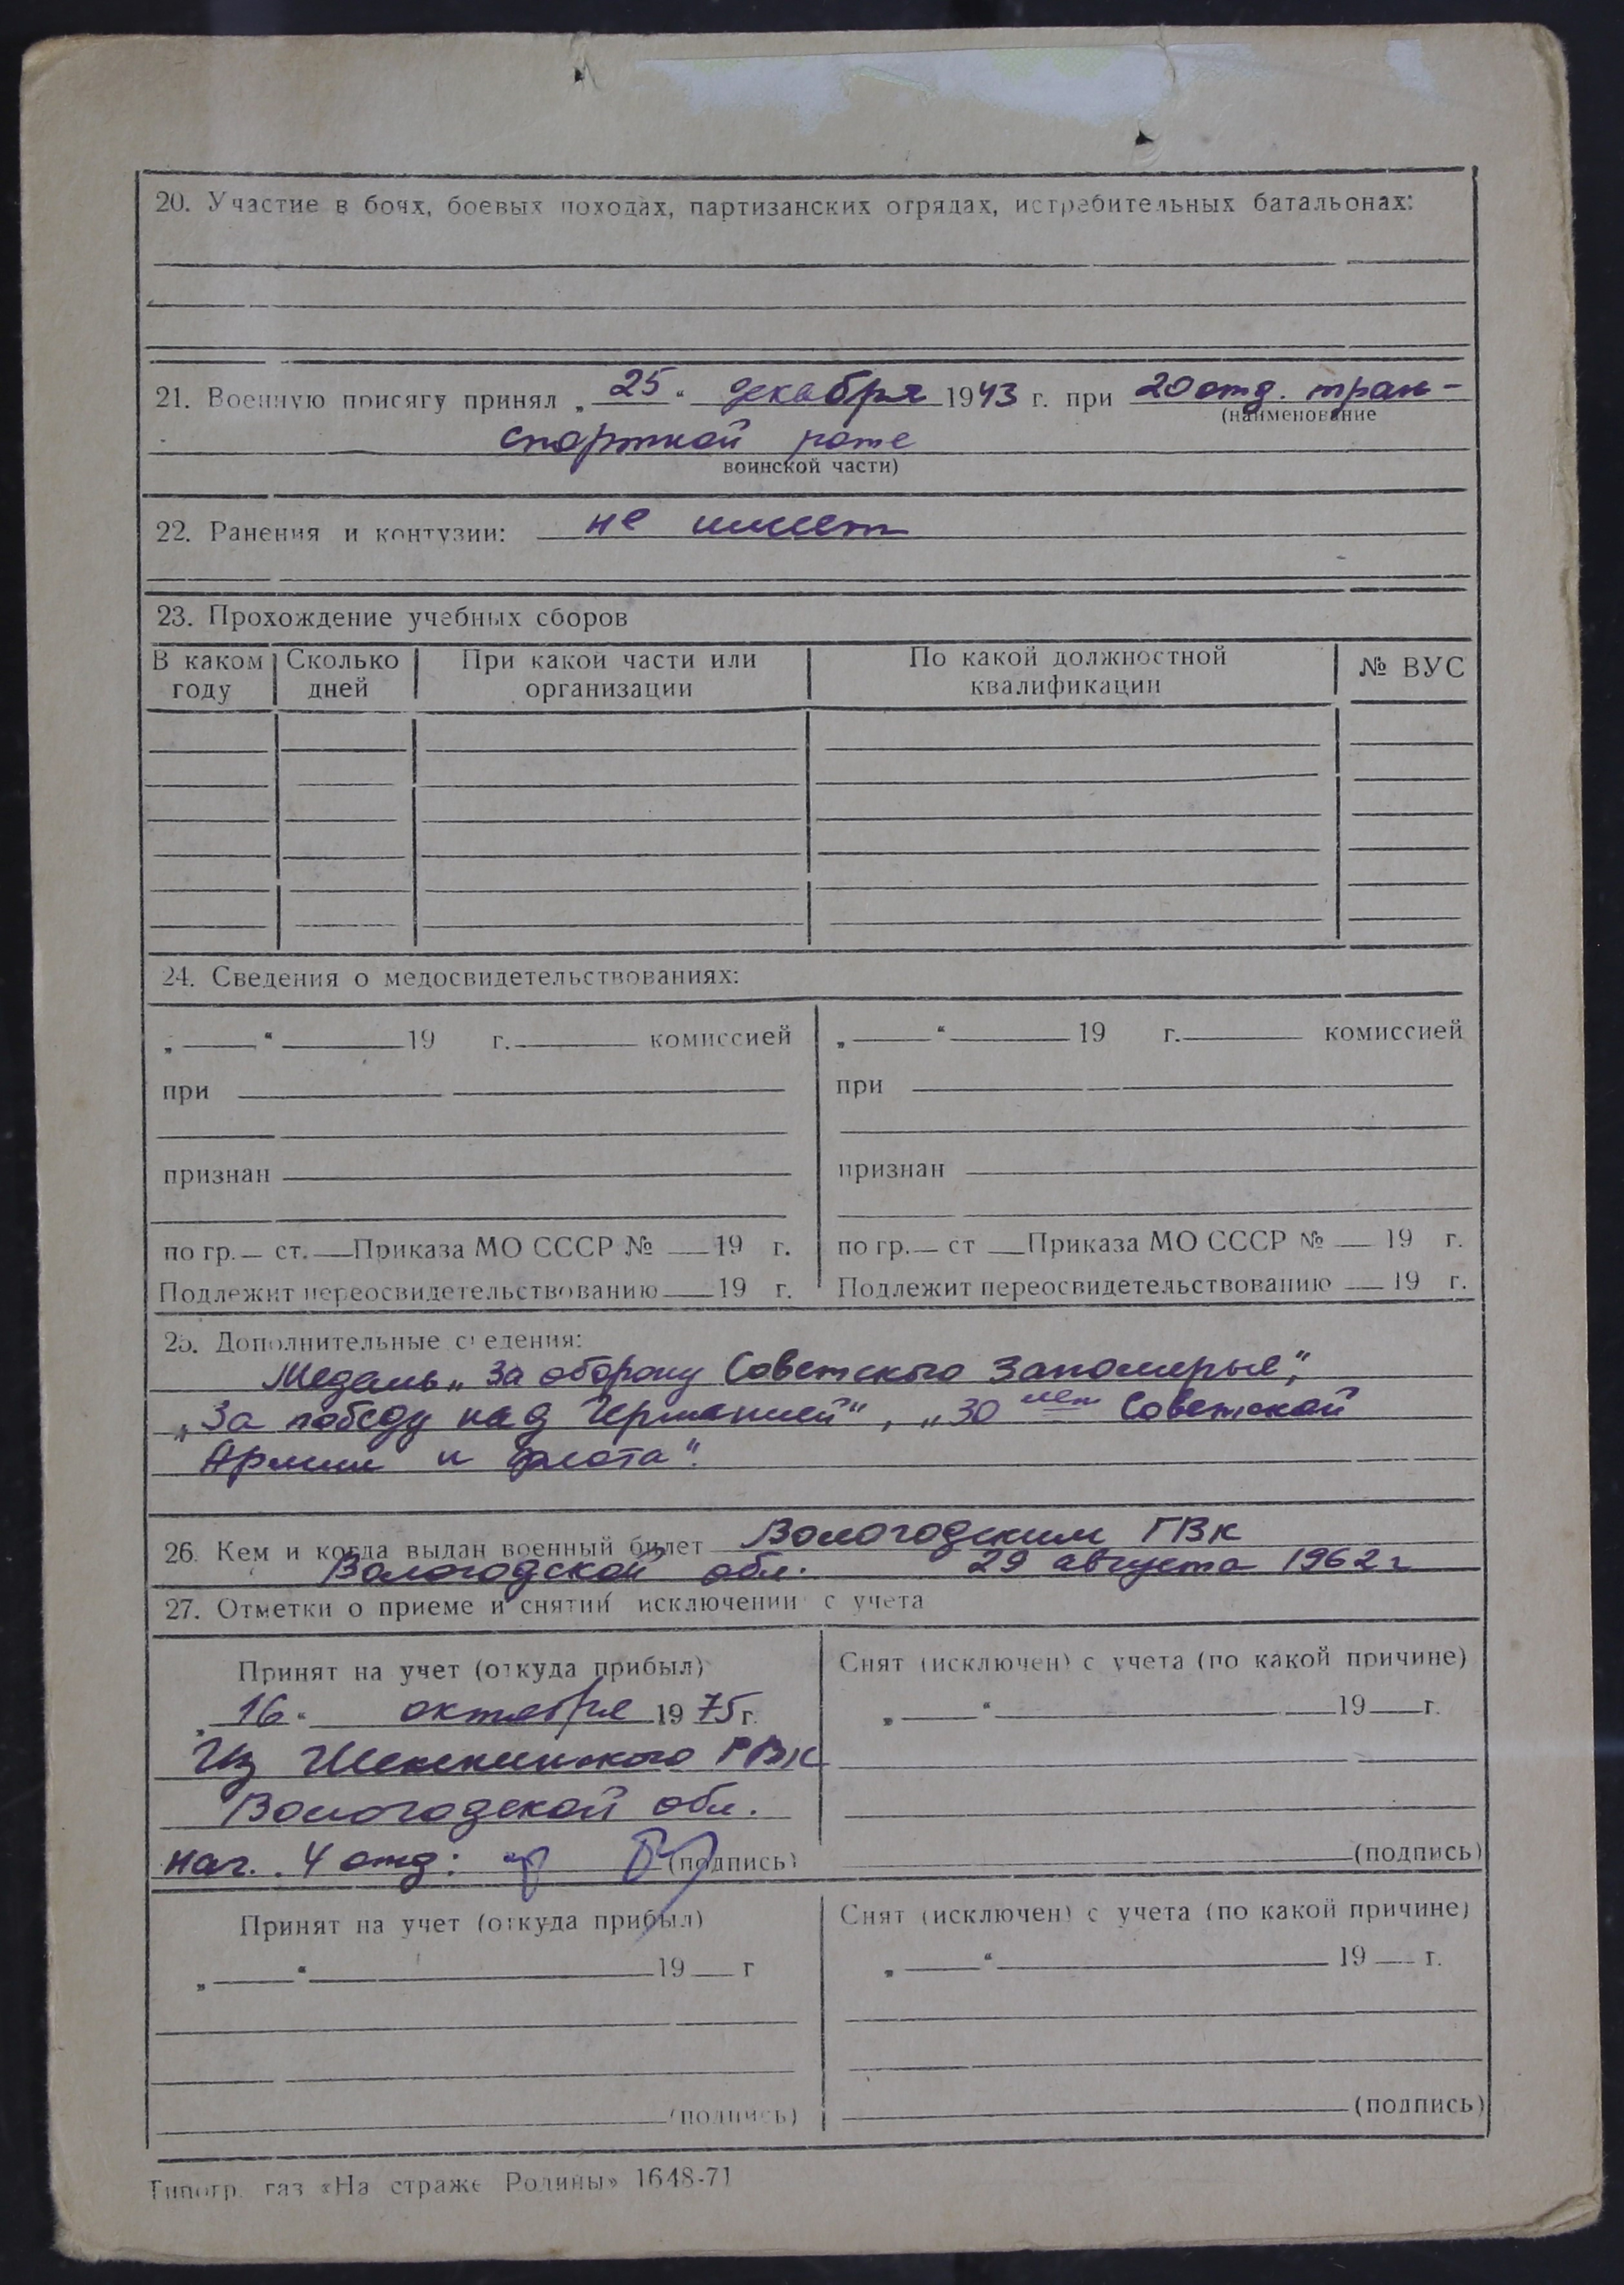 20. Участие в боях, боевых походах, партизанских отрядах, истребительных батальонах:
21. Военную присягу принял „ 25 “ декабря 1943 г. при 20 отд. тран-
(наименование
спортной роте
воинской части)
22. Ранения и контузии: не имеет
23. Прохождение учебных сборов
В каком году Сколько дней При какой части или организации По какой должностной квалификации № ВУС
24. Сведения о медосвидетельствованиях:
„ “ 19 г. комиссией „ “ 19 г. комиссией
при при
признан признан
по гр. ст. Приказа МО СССР № 19 г. по гр. ст Приказа МО СССР № 19 г.
Подлежит переосвидетельствованию 19 г. Подлежит переосвидетельствованию 19 г.
25. Дополнительные сведения:
Медаль „За оборону Советского Заполярья“,
„За победу над Германией“, „30 лет Советской
Армии и флота“.
26. Кем и когда выдан военный билет Вологодским ГВК
Вологодской обл. 29 августа 1962 г
27. Отметки о приеме и снятии исключении с учета
Принят на учет (откуда прибыл) Снят (исключен) с учета (по какой причине)
„ 16 “ октября 1975 г. „ “ 19 г.
Из Шекснинского РВК
Вологодской обл.
нач. 4 отд: (подпись) (подпись)
Принят на учет (откуда прибыл) Снят (исключен) с учета (по какой причине)
„ “ 19 г „ “ 19 г.
(подпись) (подпись)
Типогр. газ «На страже Родины» 1648-71